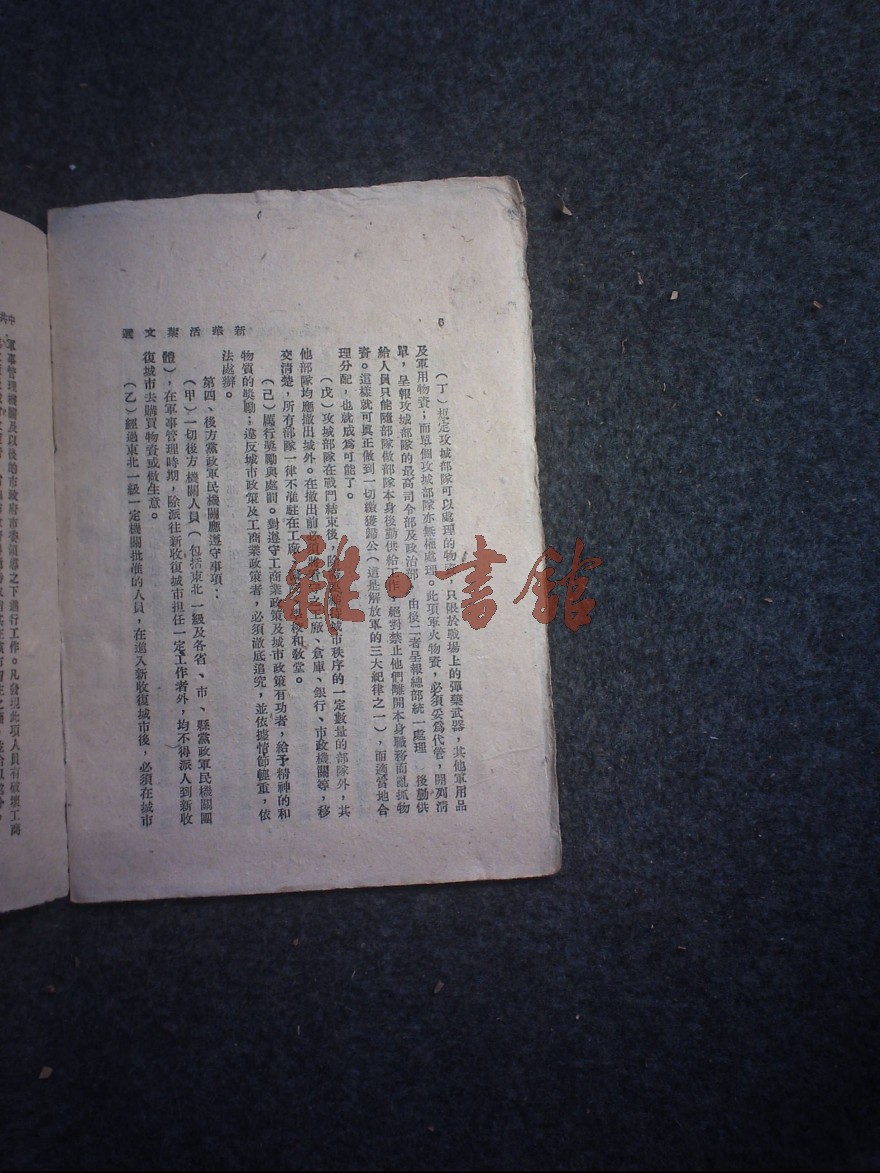 新華活葉文選
（丁）規定攻城部隊可以處理的物資，只限於戰場上的彈藥武器，其他軍用品
及軍用物資；而單個攻城部隊亦無權處理。此項軍火物資，必須妥為代管，開列清
單，呈報攻城部隊的最高司令部及政治部 由後二者呈報總部統一處理 後勤供
給人員只能隨部隊做部隊本身後勤供給工作，絕對禁止他們離開本身職務而亂抓物
資。這樣就可真正做到一切繳獲歸公（這是解放軍的三大紀律之一），而適當地合
理分配，也就成為可能了。
（戊）攻城部隊在戰鬥結束後，除 城市秩序的一定數量的部隊外，其
他部隊均應撤出城外。在撤出前必 之工廠、倉庫、銀行、市政機關等，移
交清楚，所有部隊一律不准駐在工廠 學校和教堂。
（己）厲行獎勵與處罰。對遵守工商業政策及城市政策有功者，給予精神的和
物質的獎勵；違反城市政策及工商業政策者，必須澈底追究，並依據情節輕重，依
法處辦。
第四、後方黨政軍民機關應遵守事項：
（甲）一切後方機關人員（包括東北一級及各省、市、縣黨政軍民機關團
體），在軍事管理時期，除派往新收復城市担任一定工作者外，均不得派人到新收
復城市去購買物資或做生意。
（乙）經過東北一級一定機關批准的人員，在進入新收復城市後，必須在城市
中共
軍事管理機關及以後的市政府市委領導之下進行工作。凡發現此項人員有破壞工商
雜·書館